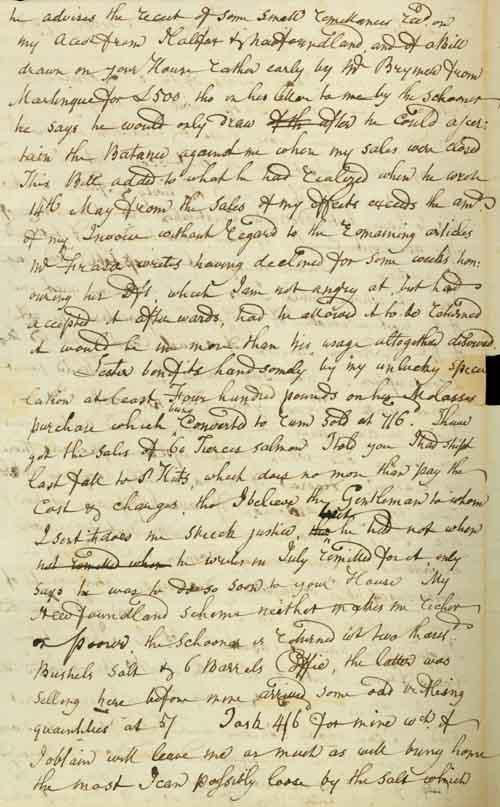 he advises the receit of some small remittances rec'd on
my Acct from Halifax & Newfoundland, and of a Bill
drawn on your House rather early by Mr Brymer from
Martinque for £500, tho in his letter to me by the schooner
he says he would only draw after he could ascer-
tain the Balance against me when my sales were closed
This Bill added to what he had realized when he wrote
14th May from the sales of my effects exceeds the amt
of my Invoice without regard to the remaining articles
Mr Fraser writes having declined for some weeks hon-
ouring his Dft, which I am not angry at, but had
accepted it afterwards, had he allowed it to be returned
it would be no more than his usage altogether deserved.
Lester benefits handsomly by my unlucky specu
lation at least Four hundred pounds on his Molasses
purchase which being converted to rum sold at 7/6d. I have
got the sales of 60 Tierces salmon I told you I had shipt
last fall to St Kitts, which does no more than pay the
Cost & charges tho I believe the Gentleman to whom
I sent it does me strick justice, he had not when
he wrote in July remitted for it only
says he was to do so soon to your House. My
Newfoundland scheme neither makes me richer
or poorer, the schooner is returned wt two thousd
Bushels salt & 6 Barrels Coffie, the latter was
selling here before mine arrived some odd trifling
quantities at 5/ I ask 4/6 for mine wch if
I obtain will leave me as much as will bring home
the most I can possibly loose by the salt which